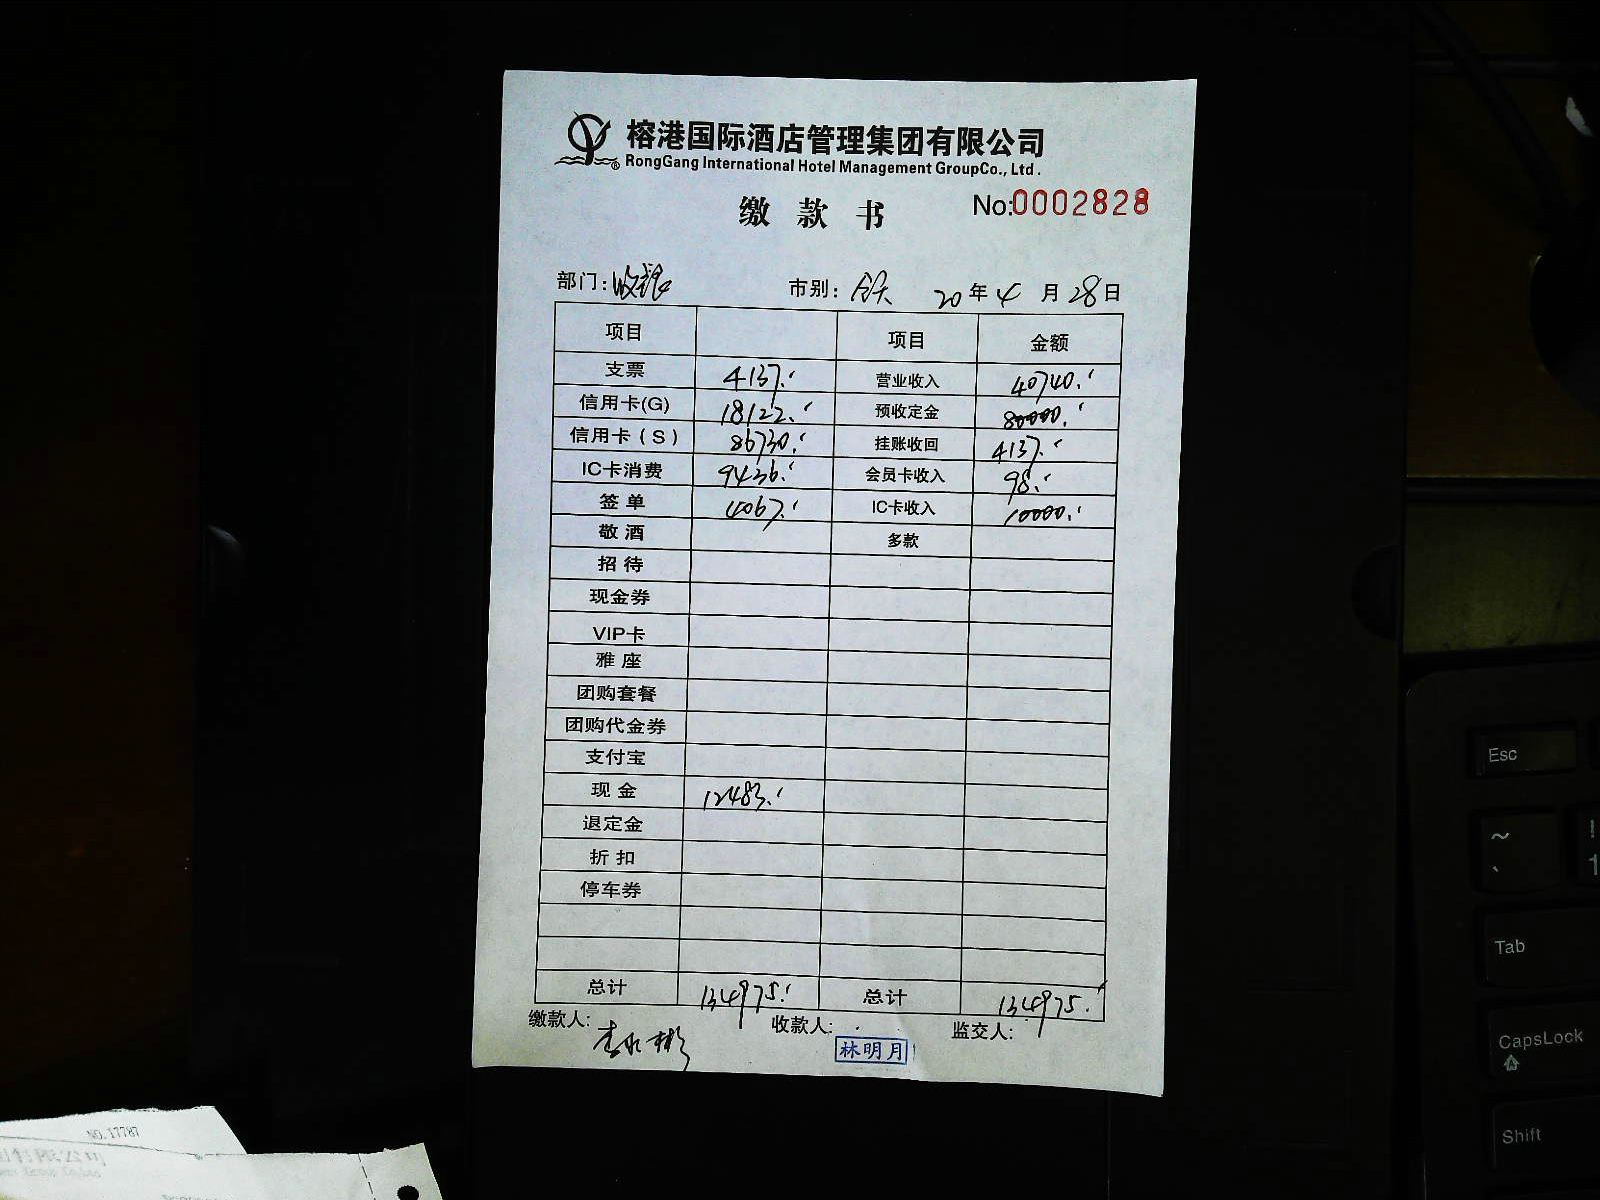 榕港国际酒店管理集团有限公司
RongGang International Hotel Management GroupCo., Ltd.
缴款书 No:0002828
部门:收银 市别:全天 20年4月28日
项目 项目 金额
支票 4137.' 营业收入 40740.'
信用卡(G) 18122.' 预收定金 80000.'
信用卡(S) 86730.' 挂账收回 4137.'
IC卡消费 9436.' 会员卡收入 98.'
签单 4067.' IC卡收入 10000.'
敬酒 多款
招待
现金券
VIP卡
雅座
团购套餐
团购代金券
支付宝
现金 12483.'
退定金
折扣
停车券
总计 134975.' 总计 134975.'
缴款人: 收款人: 林明月 监交人:
NO.17787
Esc
~
、
!
1
Tab
CapsLock
Shift